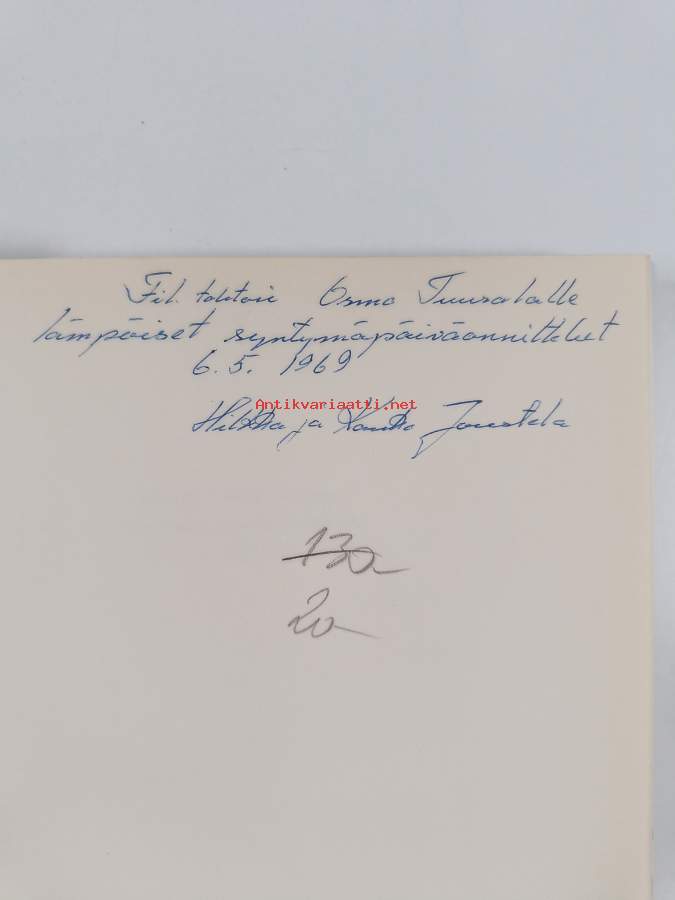 Fil. tohtori Osmo Tuusalalle
lämpöiset syntymäpäiväonnittelut
6.5. 1969
Antikvariaatti.net
Hilkka ja Kauko Joustela
130
20